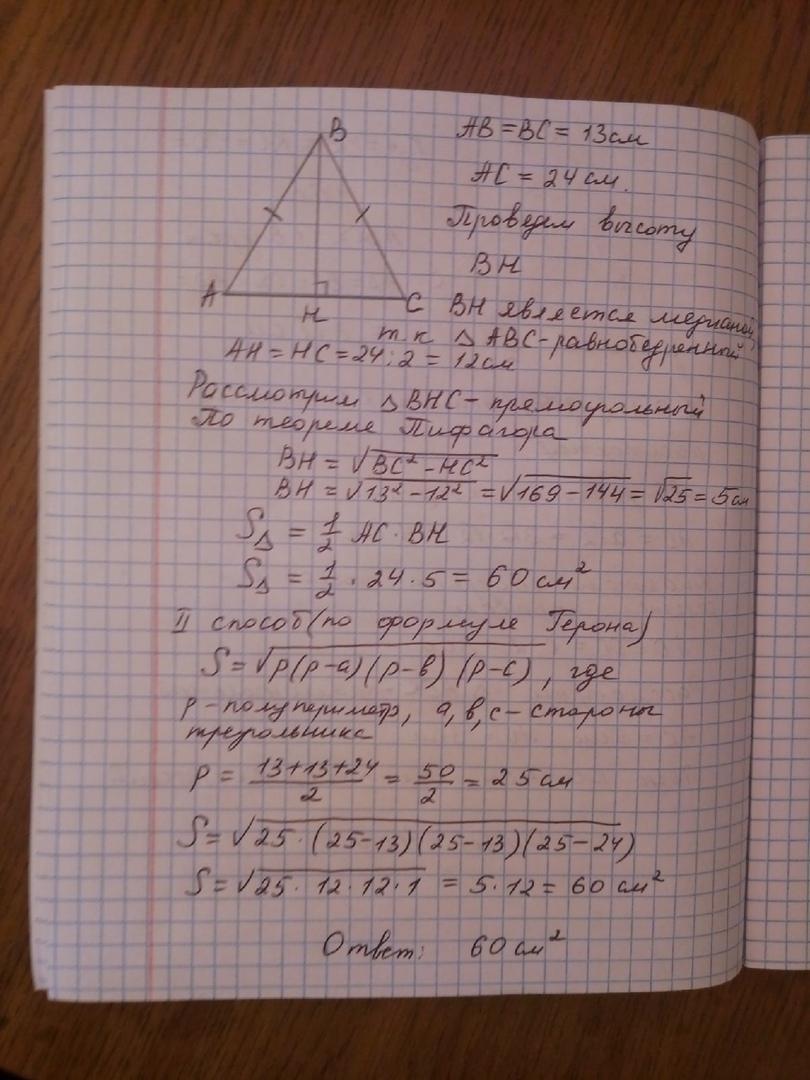 B
AB = BC = 13 см
AC = 24 см.
Проведем высоту
BH
A
H
C
BH является медианой,
т.к △ABC - равнобедренный
AH = HC = 24 : 2 = 12 см
Рассмотрим △BHC - прямоугольный
По теореме Пифагора
BH = √(BC² - HC²)
BH = √(13² - 12²) = √(169 - 144) = √25 = 5 см
S△ = 1/2 AC · BH
S△ = 1/2 · 24 · 5 = 60 см²
II способ (по формуле Герона)
S = √(p(p-a)(p-в)(p-c)), где
p - полупериметр, a, в, c - стороны
треугольника
p = (13+13+24)/2 = 50/2 = 25 см
S = √(25 · (25-13)(25-13)(25-24))
S = √(25 · 12 · 12 · 1) = 5 · 12 = 60 см²
Ответ: 60 см²